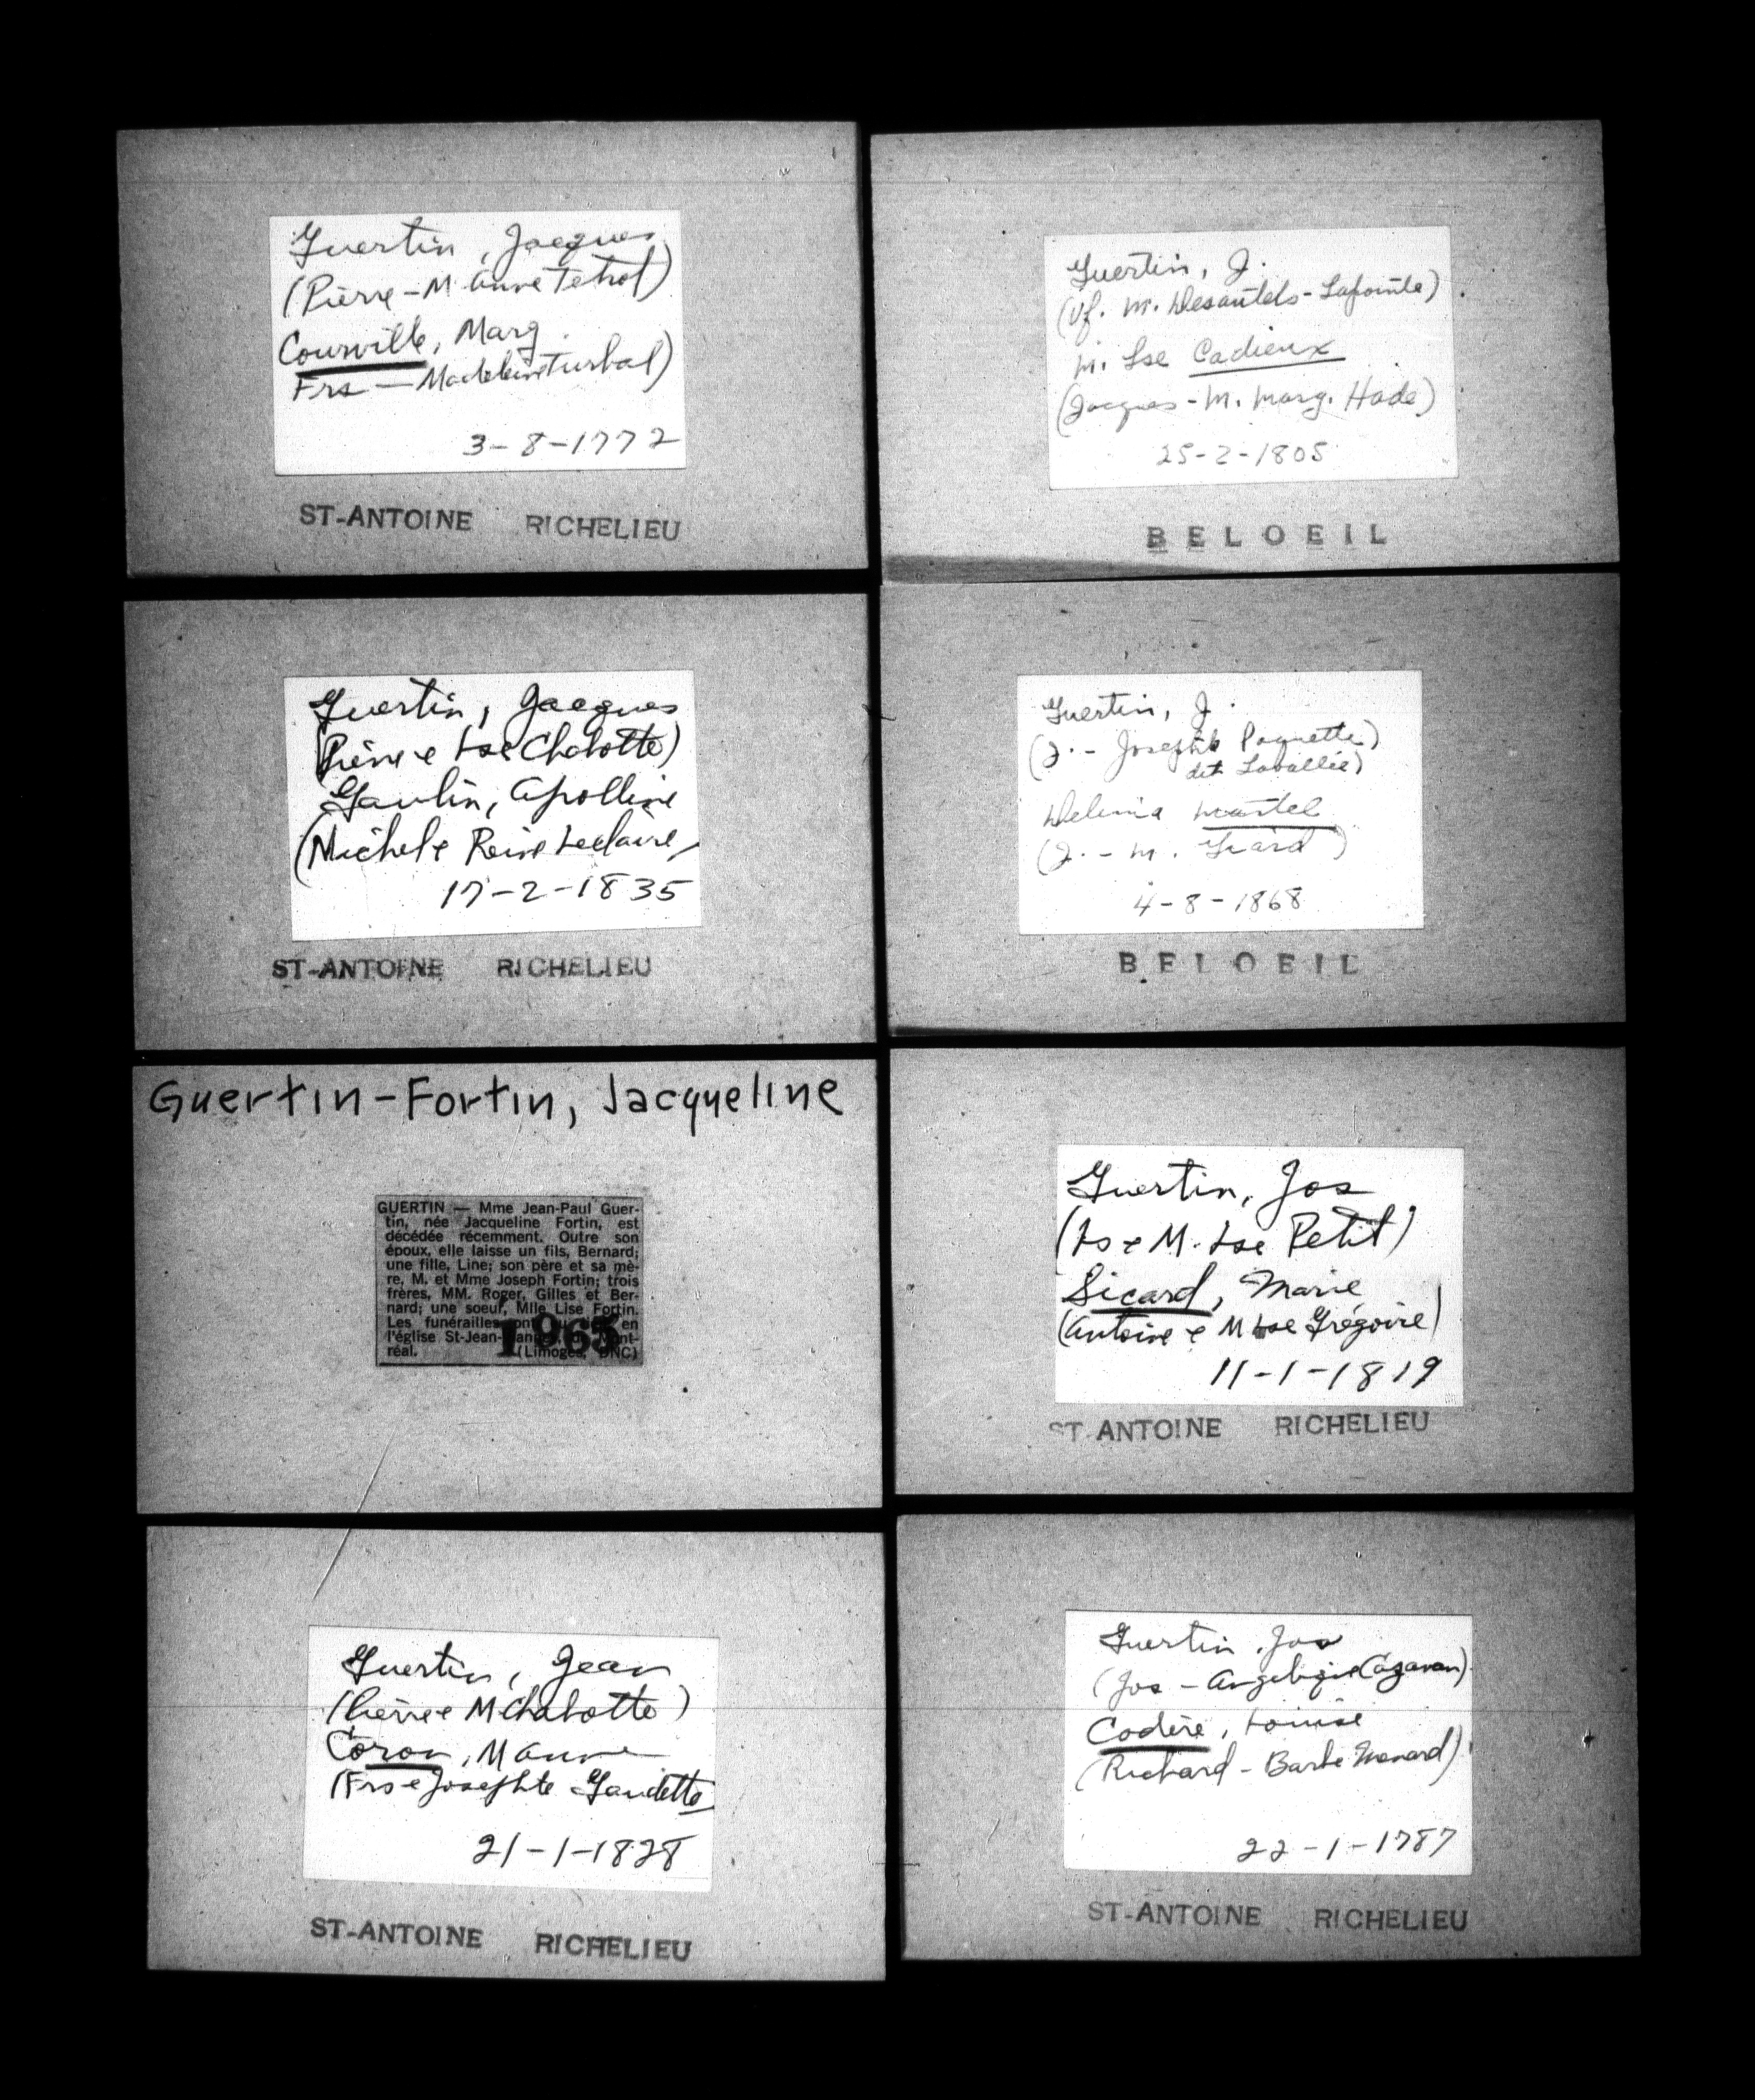 Guertin, Jacques
(Pierre - M Anne Tetrot)
Courville, Marg.
Frs — Madeleine Turbal)
3-8-1772
ST-ANTOINE RICHELIEU
Guertin, J.
(Vf. M. Desautels - Lapointe)
M. Lse Cadieux
(Jacques - M. Marg. Hade)
25-2-1805
BELOEIL
Guertin, Jacques
(Pierre e Lse Chabotte)
Gaulin, Apolline
(Michel e Reine Leclaire
17-2-1835
ST-ANTOINE RICHELIEU
Guertin, J.
(J. - Josephte Paquette)
dit Lavallée)
Delima Martel
(J. - M. Giard)
4-8-1868
BELOEIL
Guertin-Fortin, Jacqueline
GUERTIN — Mme Jean-Paul Guer-
tin, née Jacqueline Fortin, est
décédée récemment. Outre son
époux, elle laisse un fils, Bernard;
une fille, Line; son père et sa mè-
re, M. et Mme Joseph Fortin; trois
frères, MM. Roger, Gilles et Ber-
nard; une soeur, Mlle Lise Fortin.
Les funérailles ont en
l'église St-Jean-
réal. (Limoges, DNC)
1965
Guertin, Jos
(Ls e M. Lse Petit)
Sicard, Marie
(Antoine e M Lse Grégoire)
11-1-1819
ST-ANTOINE RICHELIEU
Guertin, Jean
(Pierre e M Chabotte)
Coron, M Anne
(Frs e Josephte Gaudette
21-1-1828
ST-ANTOINE RICHELIEU
Guertin, Jos
(Jos - Angelique Cazavan)
Codère, Louise
(Richard - Barbe Menard)
22-1-1787
ST-ANTOINE RICHELIEU